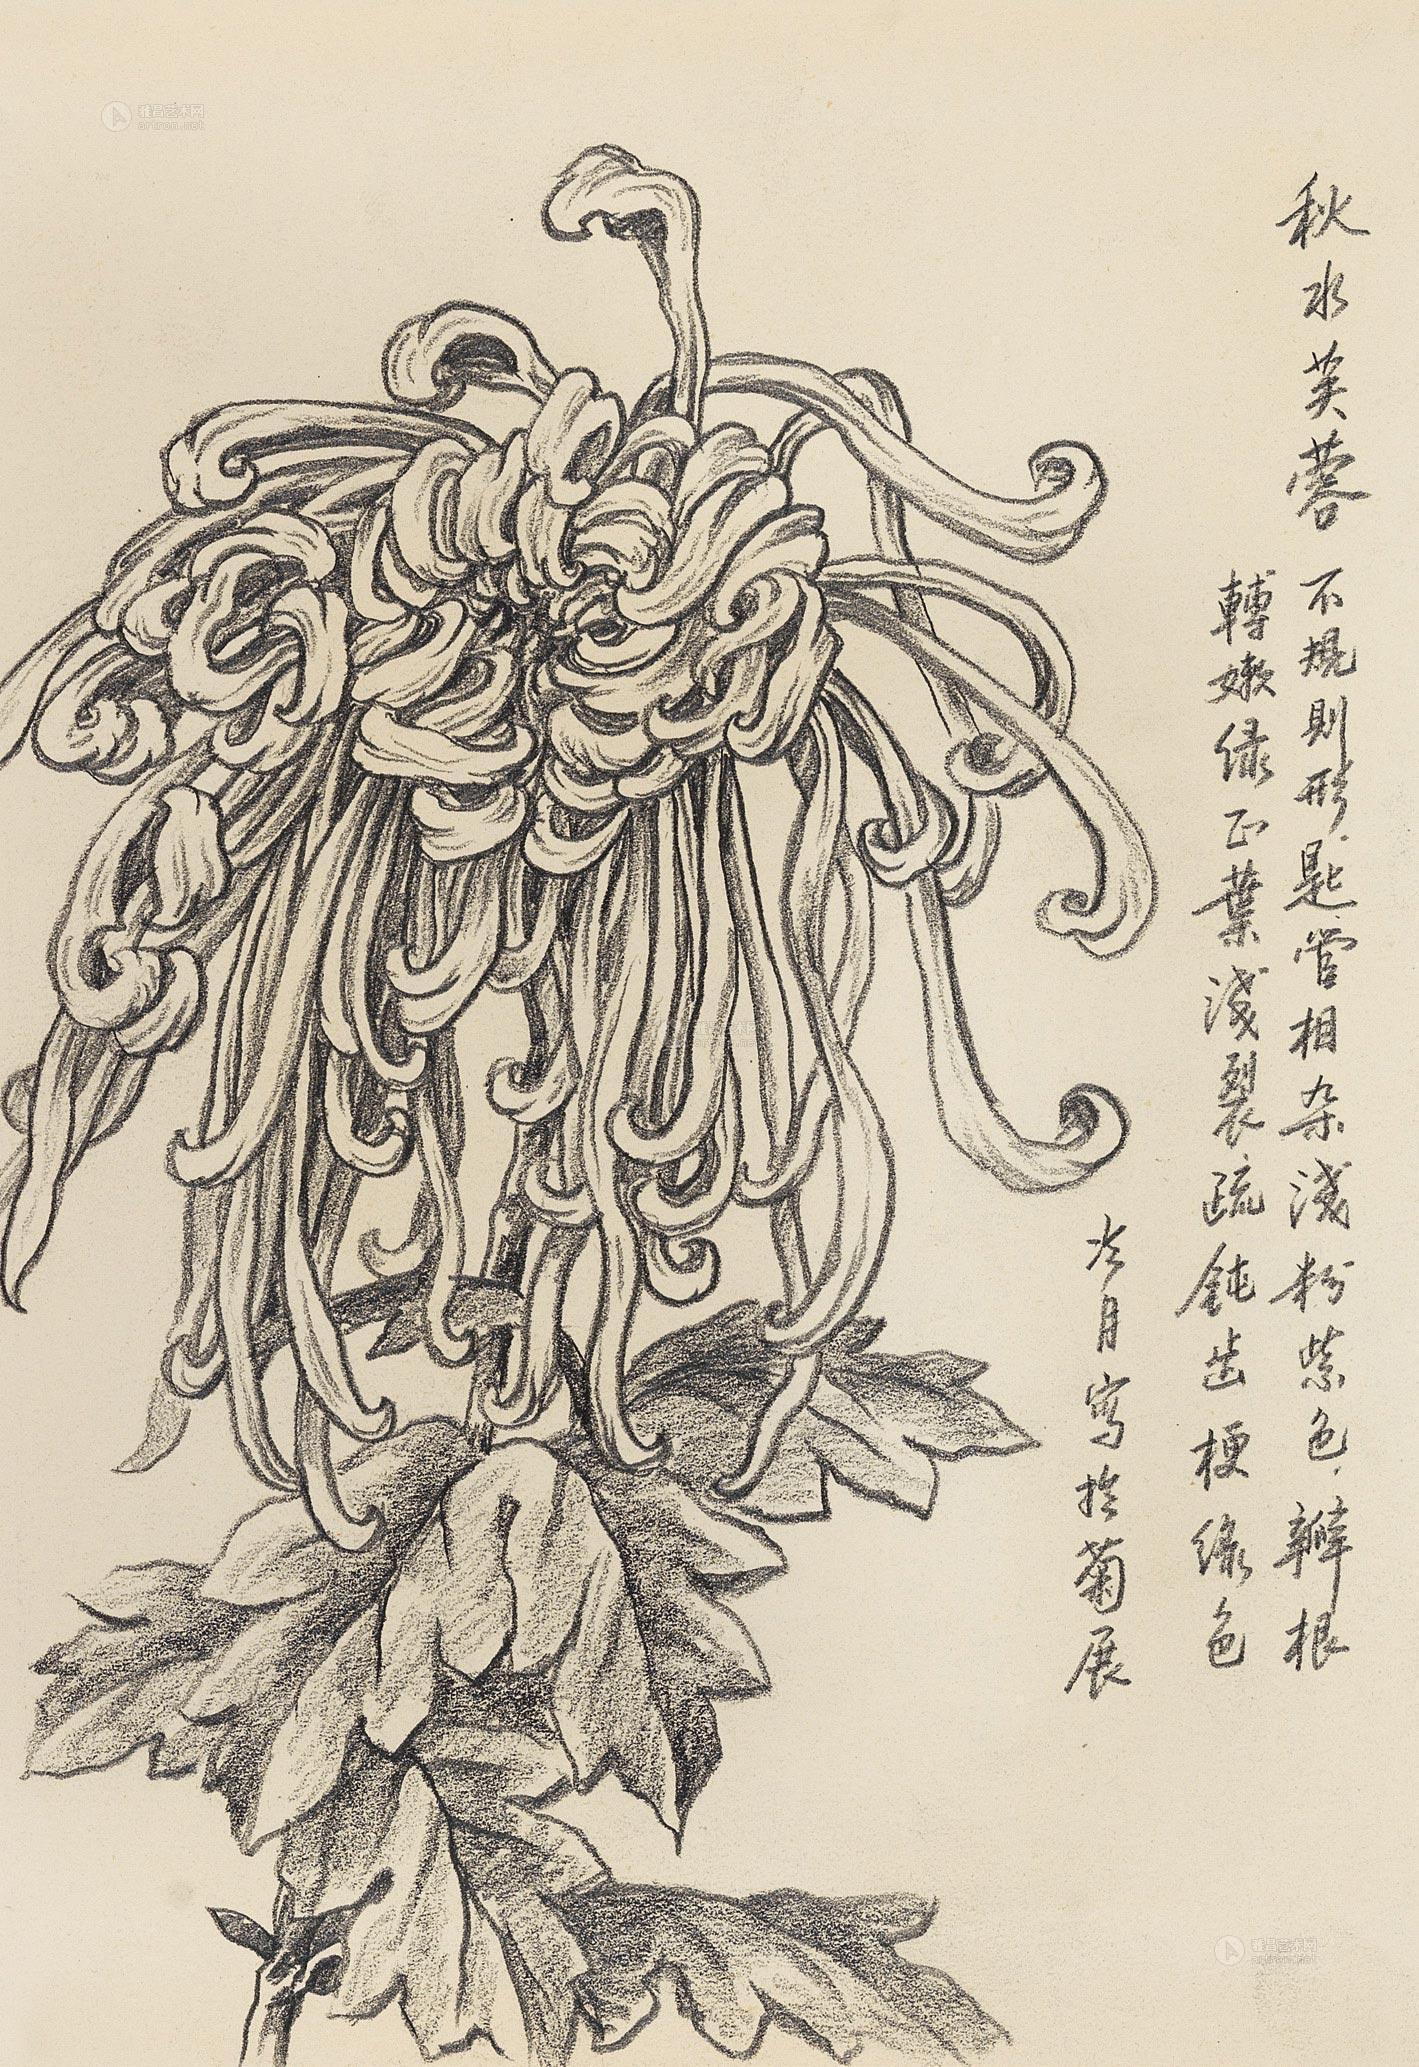 秋水芙蓉 不規則形.匙管相杂淺粉紫色.瓣根
轉嫩绿正葉淺裂疏鈍齿梗绿色
冷月寫於菊展
雅昌艺术网
artron.net
雅昌艺术网
artron.net